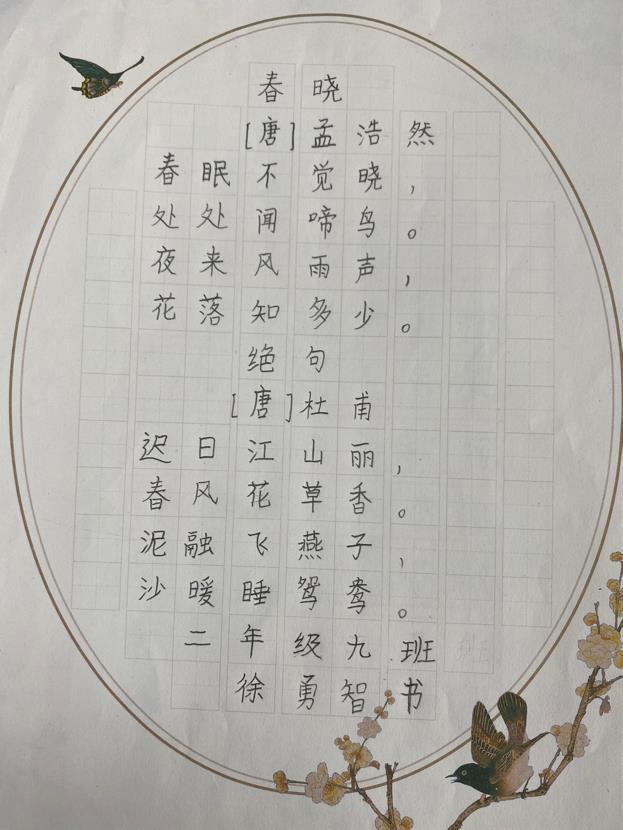 春晓
[唐]孟浩然
春眠不觉晓，
处处闻啼鸟。
夜来风雨声，
花落知多少。
绝句
[唐]杜甫
迟日江山丽，
春风花草香。
泥融飞燕子，
沙暖睡鸳鸯。
二年级九班
徐勇智书